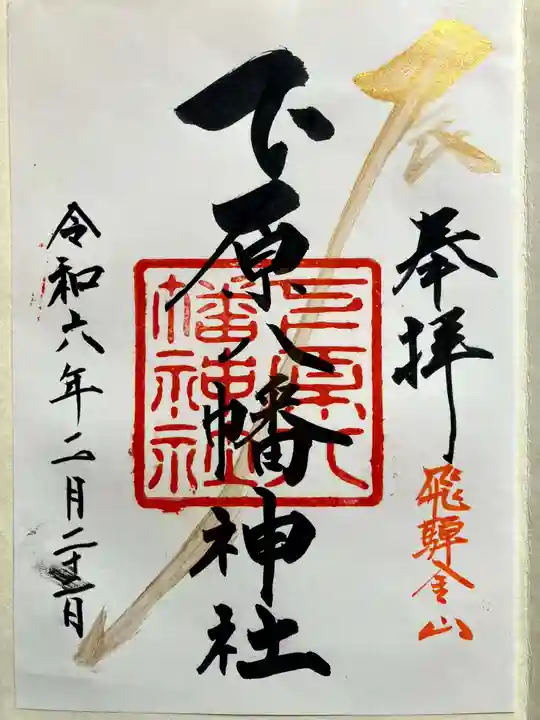 辰
奉拝
飛騨金山
下原八幡神社
下原八
幡神社
令和六年二月二十一日